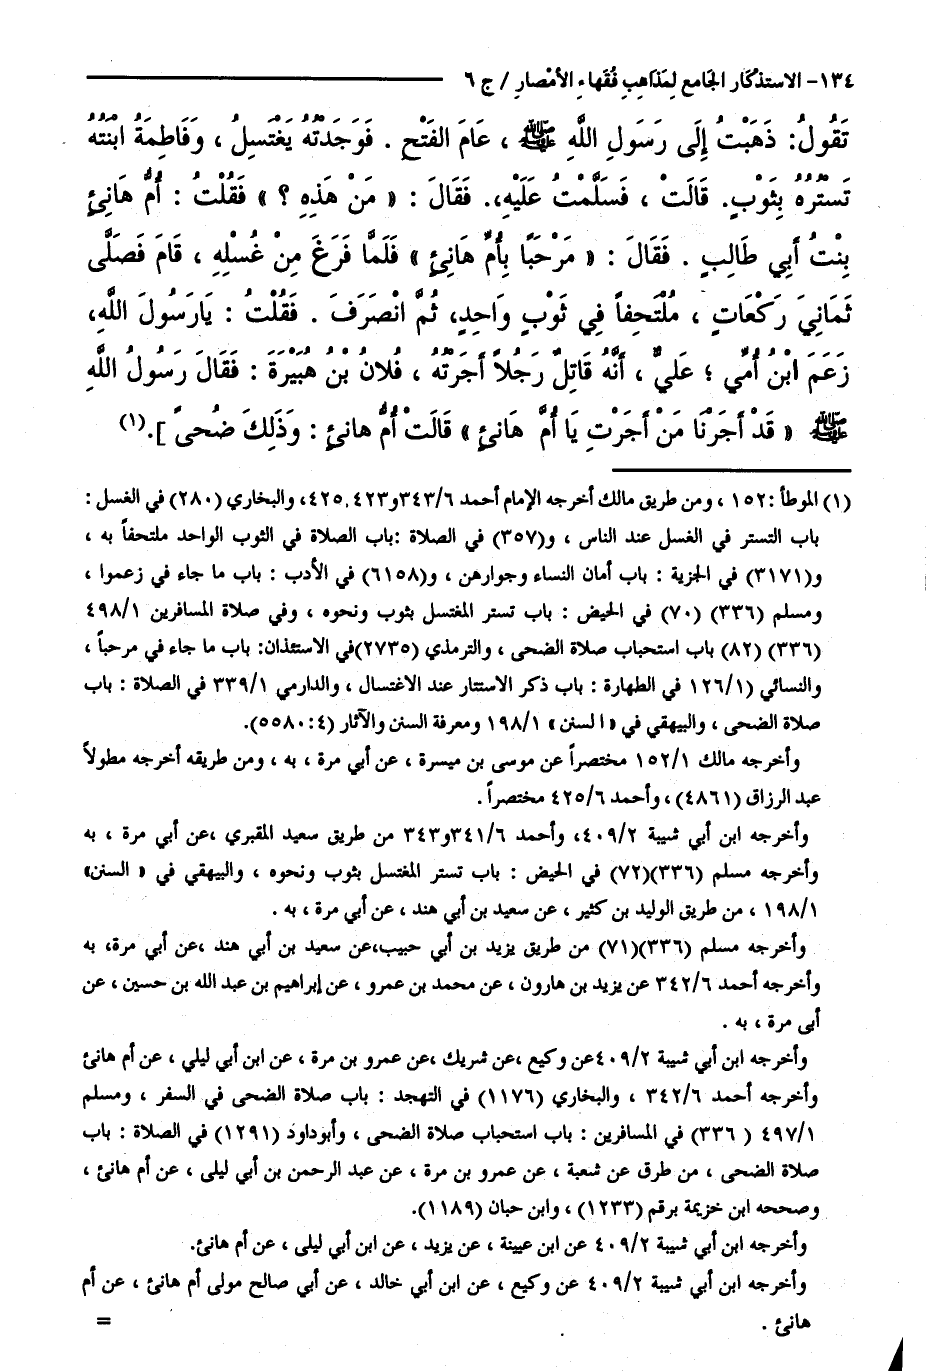 ١٣٤- الاستذكار الجامع لمذاهب فقهاء الأمصار / ج ٦
تَقُولُ: ذَهَبْتُ إِلَى رَسُولِ اللَّهِ ﷺ ، عَامَ الفَتْحِ . فَوَجَدْتُهُ يَغْتَسِلُ ، وَفَاطِمَةُ ابْنَتُهُ
تَسْتُرُهُ بِثَوْبٍ. قَالَتْ ، فَسَلَّمْتُ عَلَيْهِ،. فَقَالَ : « مَنْ هَذِهِ ؟ » فَقُلْتُ : أُمُّ هَانِئٍ
بِنْتُ أَبِي طَالِبٍ . فَقَالَ : « مَرْحَبًا بِأُمِّ هَانِئٍ » فَلَمَّا فَرَغَ مِنْ غُسْلِهِ ، قَامَ فَصَلَّى
ثَمَانِيَ رَكْعَاتٍ ، مُلْتَحِفاً فِي ثَوْبٍ وَاحِدٍ، ثُمَّ انْصَرَفَ . فَقُلْتُ : يَارَسُولَ اللَّهِ،
زَعَمَ ابْنُ أُمِّي ؛ عَلِيٌّ ، أَنَّهُ قَاتِلٌ رَجُلاً أَجَرْتُهُ ، فُلانُ بْنُ هُبَيْرَةَ : فَقَالَ رَسُولُ اللَّهِ
ﷺ « قَدْ أَجَرْنَا مَنْ أَجَرْتِ يَا أُمَّ هَانِئٍ » قَالَتْ أُمُّ هانِئٍ : وَذَلِكَ ضُحىً ].(١)
(١) الموطأ :١٥٢ ، ومن طريق مالك أخرجه الإمام أحمد ٣٤٣/٦و٤٢٣, ٤٢٥، والبخاري (٢٨٠) في الغسل :
باب التستر في الغسل عند الناس ، و(٣٥٧) في الصلاة :باب الصلاة في الثوب الواحد ملتحفاً به ،
و(٣١٧١) في الجزية : باب أمان النساء وجوارهن ، و(٦١٥٨) في الأدب : باب ما جاء في زعموا ،
ومسلم (٣٣٦) (٧٠) في الحيض : باب تستر المغتسل بثوب ونحوه ، وفي صلاة المسافرين ٤٩٨/١
(٣٣٦) (٨٢) باب استحباب صلاة الضحى ، والترمذي (٢٧٣٥)في الاستئذان: باب ما جاء في مرحباً ،
والنسائي (١٢٦/١ في الطهارة : باب ذكر الاستتار عند الاغتسال ، والدارمي ٣٣٩/١ في الصلاة : باب
صلاة الضحى ، والبيهقي في « السنن » ١٩٨/١ ومعرفة السنن والآثار (٤ :٥٥٨٠).
وأخرجه مالك ١٥٢/١ مختصراً عن موسى بن ميسرة ، عن أبي مرة ، به ، ومن طريقه أخرجه مطولاً
عبد الرزاق (٤٨٦١) ، وأحمد ٤٢٥/٦ مختصراً .
وأخرجه ابن أبي شيبة ٤٠٩/٢، وأحمد ٣٤١/٦و٣٤٣ من طريق سعيد المقبري ،عن أبي مرة ، به
وأخرجه مسلم (٣٣٦)(٧٢) في الحيض : باب تستر المغتسل بثوب ونحوه ، والبيهقي في « السنن»
١٩٨/١ ، من طريق الوليد بن كثير ، عن سعيد بن أبي هند ، عن أبي مرة ، به .
وأخرجه مسلم (٣٣٦)(٧١) من طريق يزيد بن أبي حبيب،عن سعيد بن أبي هند ،عن أبي مرة، به
وأخرجه أحمد ٣٤٢/٦ عن يزيد بن هارون ، عن محمد بن عمرو ، عن إبراهيم بن عبد الله بن حسين ، عن
أبى مرة ، به .
وأخرجه ابن أبي شيبة ٤٠٩/٢عن وكيع ،عن شريك ،عن عمرو بن مرة ، عن ابن أبي ليلي ، عن أم هانئ
وأخرجه أحمد ٣٤٢/٦ ، والبخاري (١١٧٦) في التهجد : باب صلاة الضحى في السفر ، ومسلم
٤٩٧/١ ( ٣٣٦) في المسافرين : باب استحباب صلاة الضحى ، وأبوداود (١٢٩١) في الصلاة : باب
صلاة الضحى ، من طرق عن شعبة ، عن عمرو بن مرة ، عن عبد الرحمن بن أبي ليلى ، عن أم هانئ ،
وصححه ابن خزيمة برقم (١٢٣٣) ، وابن حبان (١١٨٩).
وأخرجه ابن أبي شيبة ٤٠٩/٢ عن ابن عيينة ، عن يزيد ، عن ابن أبي ليلى ، عن أم هانئ.
وأخرجه ابن أبي شيبة ٤٠٩/٢ عن وكيع ، عن ابن أبي خالد ، عن أبي صالح مولى أم هانئ ، عن أم
هانئ .
=